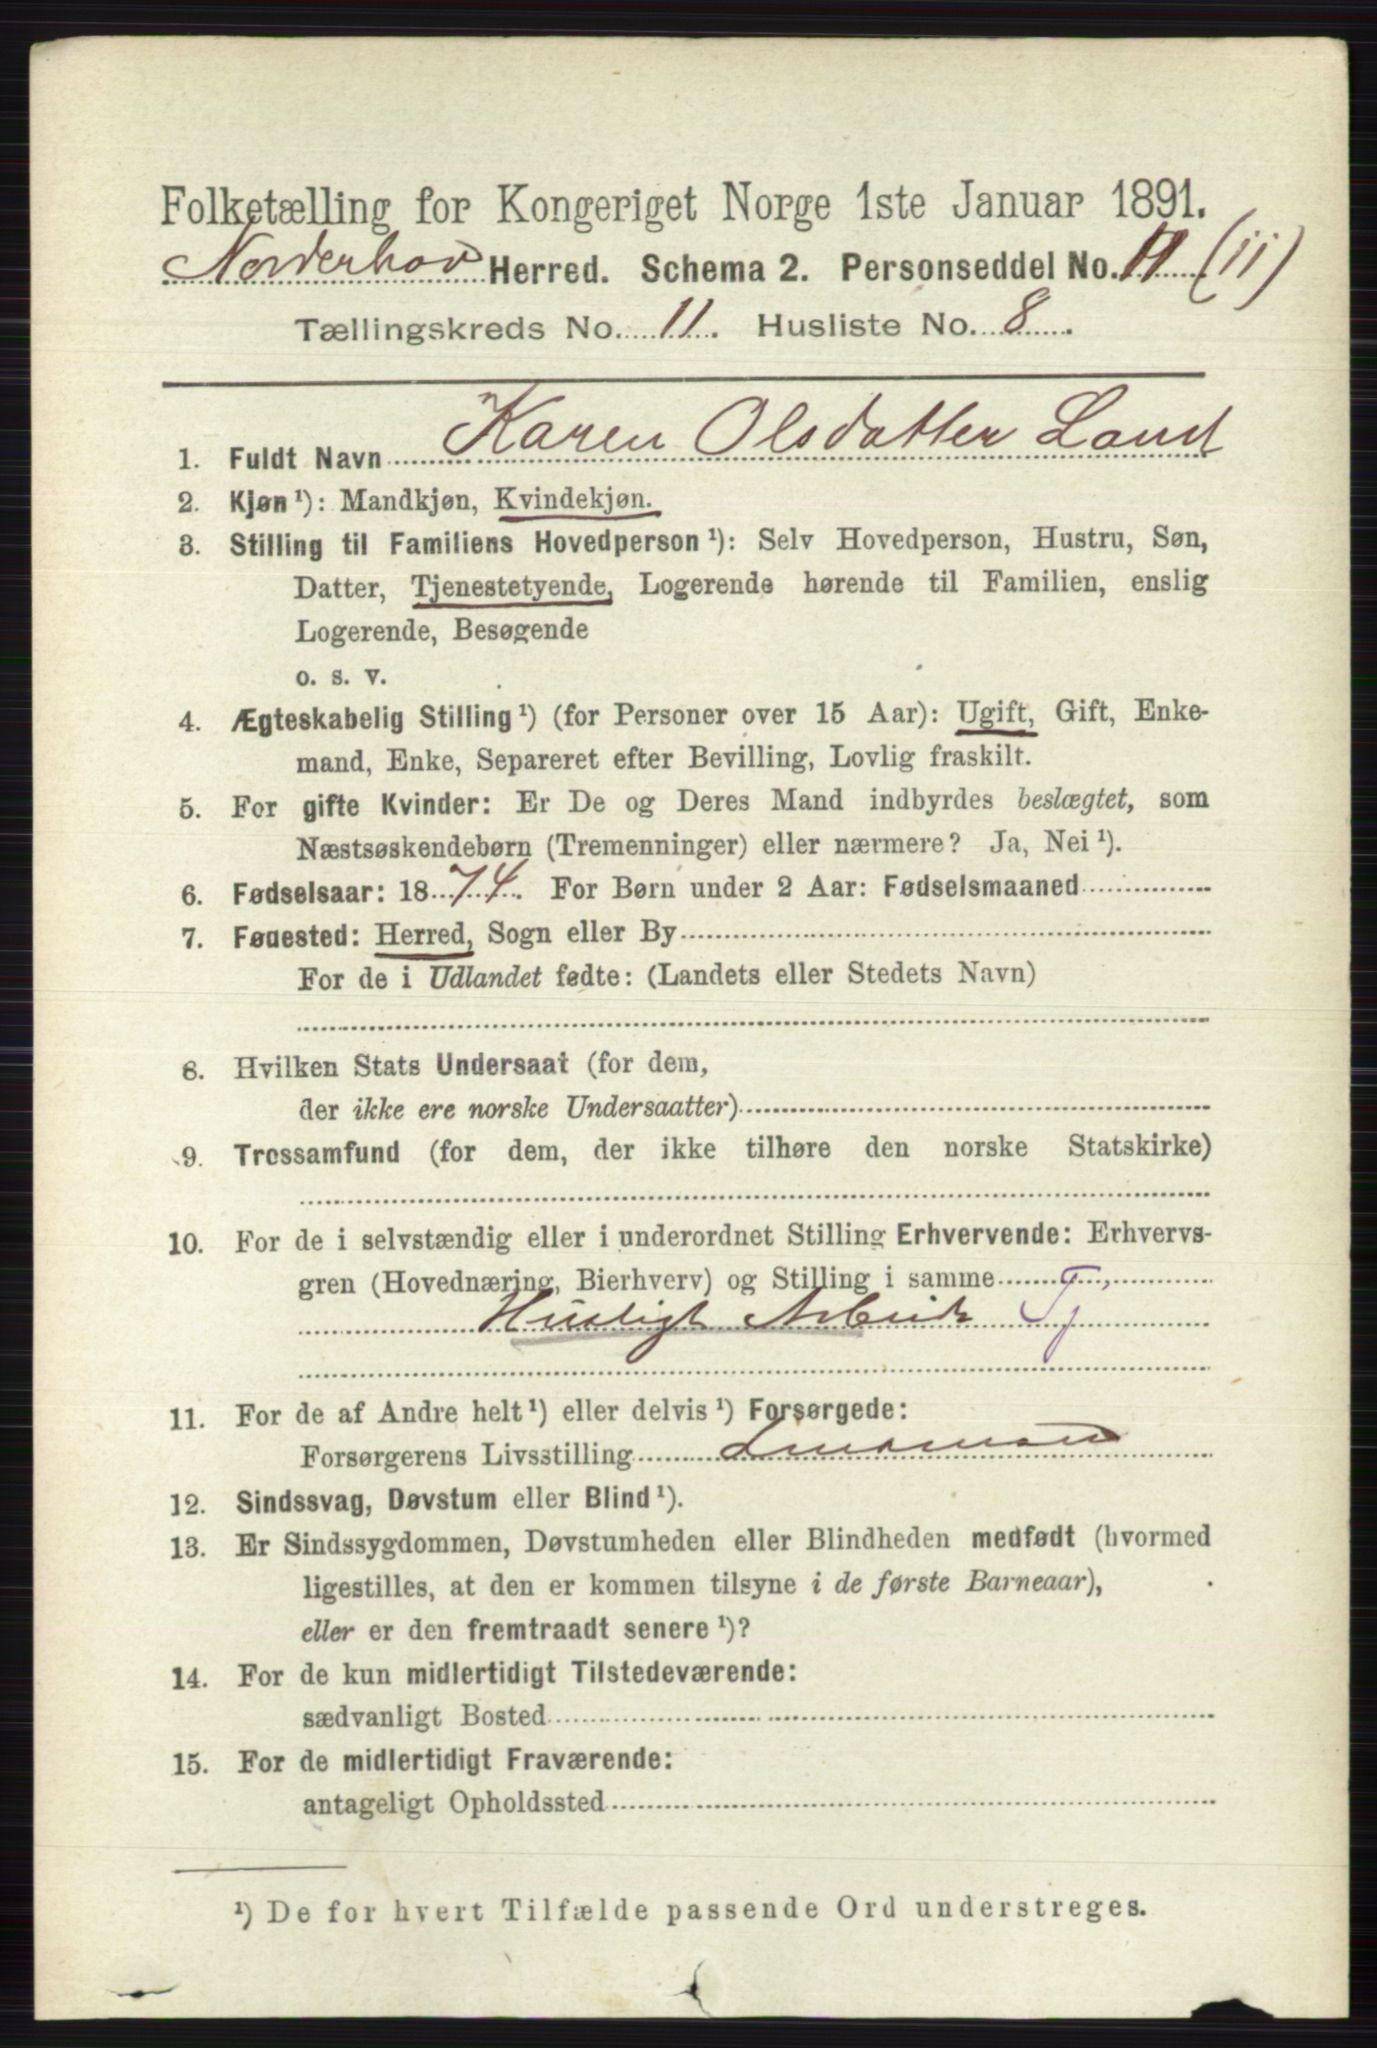 Folketælling for Kongeriget Norge 1ste Januar 1891.
Norderhov Herred. Schema 2. Personseddel No. 11 (11)
Tællingskreds No. 11. Husliste No. 8.
1. Fuldt Navn Karen Olsdatter Land
2. Kjøn ¹): Mandkjøn, Kvindekjøn.
3. Stilling til Familiens Hovedperson ¹): Selv Hovedperson, Hustru, Søn,
Datter, Tjenestetyende, Logerende hørende til Familien, enslig
Logerende, Besøgende
o. s. v.
4. Ægteskabelig Stilling ¹) (for Personer over 15 Aar): Ugift, Gift, Enke-
mand, Enke, Separeret efter Bevilling, Lovlig fraskilt.
5. For gifte Kvinder: Er De og Deres Mand indbyrdes beslægtet, som
Næstsøskendebørn (Tremenninger) eller nærmere? Ja, Nei ¹).
6. Fødselsaar: 1874. For Børn under 2 Aar: Fødselsmaaned
7. Fødested: Herred, Sogn eller By
For de i Udlandet fødte: (Landets eller Stedets Navn)
8. Hvilken Stats Undersaat (for dem,
der ikke ere norske Undersaatter)
9. Trossamfund (for dem, der ikke tilhøre den norske Statskirke)
10. For de i selvstændig eller i underordnet Stilling Erhvervende: Erhvervs-
gren (Hovednæring, Bierhverv) og Stilling i samme
Husligt Arbeide Tj
11. For de af Andre helt ¹) eller delvis ¹) Forsørgede:
Forsørgerens Livsstilling
12. Sindssvag, Døvstum eller Blind ¹).
13. Er Sindssygdommen, Døvstumheden eller Blindheden medfødt (hvormed
ligestilles, at den er kommen tilsyne i de første Barneaar),
eller er den fremtraadt senere ¹)?
14. For de kun midlertidigt Tilstedeværende:
sædvanligt Bosted
15. For de midlertidigt Fraværende:
antageligt Opholdssted
¹) De for hvert Tilfælde passende Ord understreges.